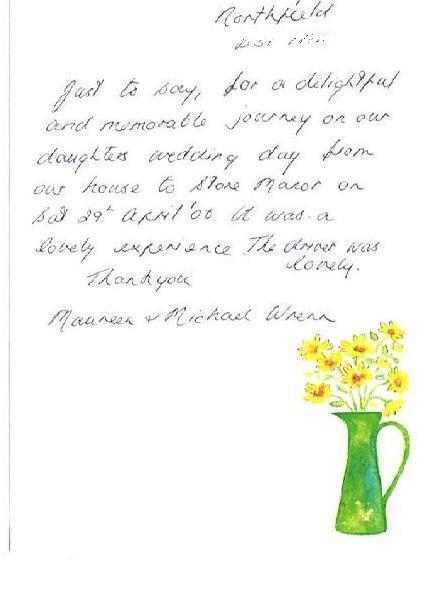 Northfield
Just to say, for a delightful
and memorable journey on our
daughters wedding day from
our house to Stone Manor on
Sat 29th April '00. It was a
lovely experience The driver was
lovely.
Thankyou
Maureen & Michael Wrenn